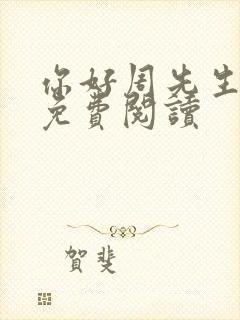 你好周先生
免費閱讀
賀斐